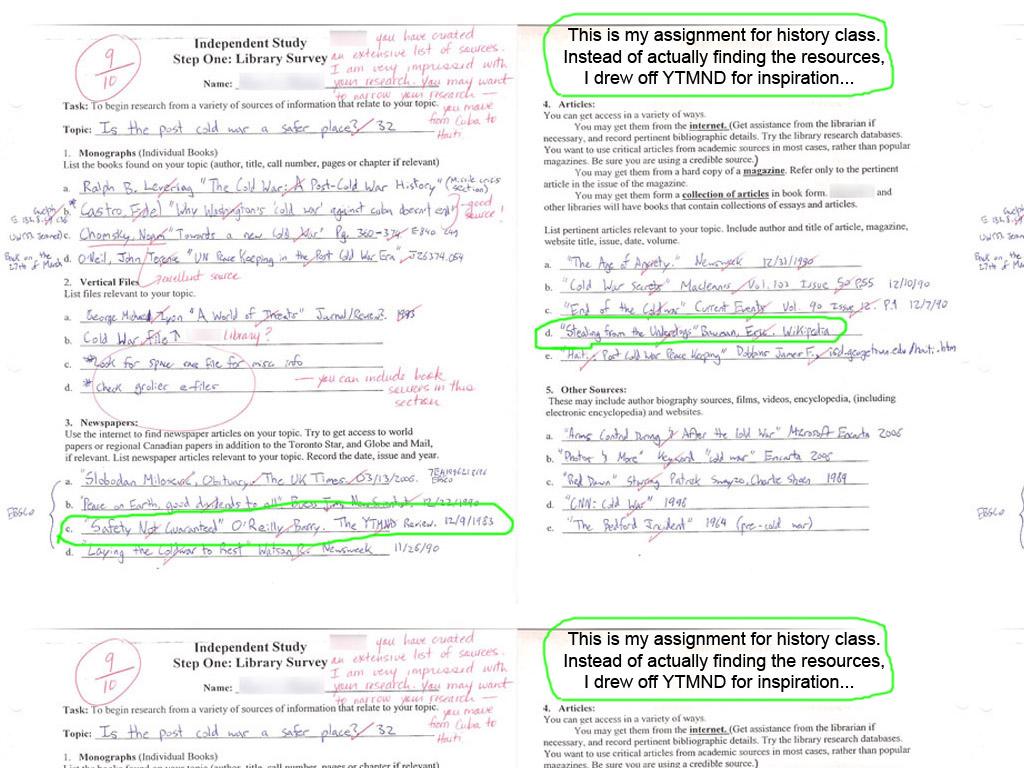 9/10
Independent Study
Step One: Library Survey
Name:
you have created
an extensive list of sources.
I am very impressed with
your research. You may want
to narrow your research —
you move
from Cuba to
Haiti.
Task: To begin research from a variety of sources of information that relate to your topic.
Topic: Is the post cold war a safer place? 32
1. Monographs (Individual Books)
List the books found on your topic (author, title, call number, pages or chapter if relevant)
a. Ralph B. Levering "The Cold War: A Post-Cold War History" (Missile crisis section)
b. * Castro, Fidel "Why Washington's 'cold war' against cuba doesn't end"
good source!
c. Chomsky, Noam "Towards a new Cold War" Pg. 360-374 E840
Back on the
27th of March
d. O'Neil, John Terence "UN Peace Keeping in the Post Cold War Era" JZ6374.054
excellent source
2. Vertical Files
List files relevant to your topic.
a. George Michael Lyon "A World of Threats" Journal/Review? 1983
b. Cold War File ↑
Library?
c. *Look for space race file for misc info
d. * Check grolier e-files
— you can include book
sources in this
section
3. Newspapers:
Use the internet to find newspaper articles on your topic. Try to get access to world
papers or regional Canadian papers in addition to the Toronto Star, and Globe and Mail,
if relevant. List newspaper articles relevant to your topic. Record the date, issue and year.
EBSCO
a. "Slobodan Milosevic, Obituary, The UK Times. 03/13/2006.
EBSCO
b. "Peace on Earth, good dividends to all" New Scientist. 12/22/1990
c. "Safety Not Guaranteed" O'Reilly, Barry. The YTMND Review. 12/9/1983
d. "Laying the Coldwar to Rest" Watson R. Newsweek 11/26/90
This is my assignment for history class.
Instead of actually finding the resources,
I drew off YTMND for inspiration...
4. Articles:
You can get access in a variety of ways.
You may get them from the internet. (Get assistance from the librarian if
necessary, and record pertinent bibliographic details. Try the library research databases.
You want to use critical articles from academic sources in most cases, rather than popular
magazines. Be sure you are using a credible source.)
You may get them from a hard copy of a magazine. Refer only to the pertinent
article in the issue of the magazine.
You may get them form a collection of articles in book form. and
other libraries will have books that contain collections of essays and articles.
List pertinent articles relevant to your topic. Include author and title of article, magazine,
website title, issue, date, volume.
a. "The Age of Anxiety." Newsweek 12/31/1990
b. "Cold War Secrets" Macleans Vol. 103 Issue 50 P55 12/10/90
c. "End of the Coldwar" Current Events Vol. 90 Issue 12. P.1 12/7/90
d. "Stealing from the Underdogs" Bauman, Eric. Wikipedia
e. "Haiti, Post Cold War Peace Keeping" Dobbins James F., isd.georgetown.edu/haiti.htm
5. Other Sources:
These may include author biography sources, films, videos, encyclopedia, (including
electronic encyclopedia) and websites.
a. "Arms Control During & After the Cold War" Microsoft Encarta 2006
b. "Photos & More" Keyword "cold war" Encarta 2006
c. "Red Dawn" Starring Patrick Swayze, Charlie Sheen 1984
d. "CNN: Cold War" 1998
e. "The Bedford Incident" 1964 (pre-cold war)
Back on the
27th of March
EBSCO
9/10
Independent Study
Step One: Library Survey
Name:
you have created
an extensive list of sources.
I am very impressed with
your research. You may want
to narrow your research —
you move
from Cuba to
Haiti.
Task: To begin research from a variety of sources of information that relate to your topic.
Topic: Is the post cold war a safer place? 32
1. Monographs (Individual Books)
This is my assignment for history class.
Instead of actually finding the resources,
I drew off YTMND for inspiration...
4. Articles:
You can get access in a variety of ways.
You may get them from the internet. (Get assistance from the librarian if
necessary, and record pertinent bibliographic details. Try the library research databases.
You want to use critical articles from academic sources in most cases, rather than popular
magazines. Be sure you are using a credible source.)